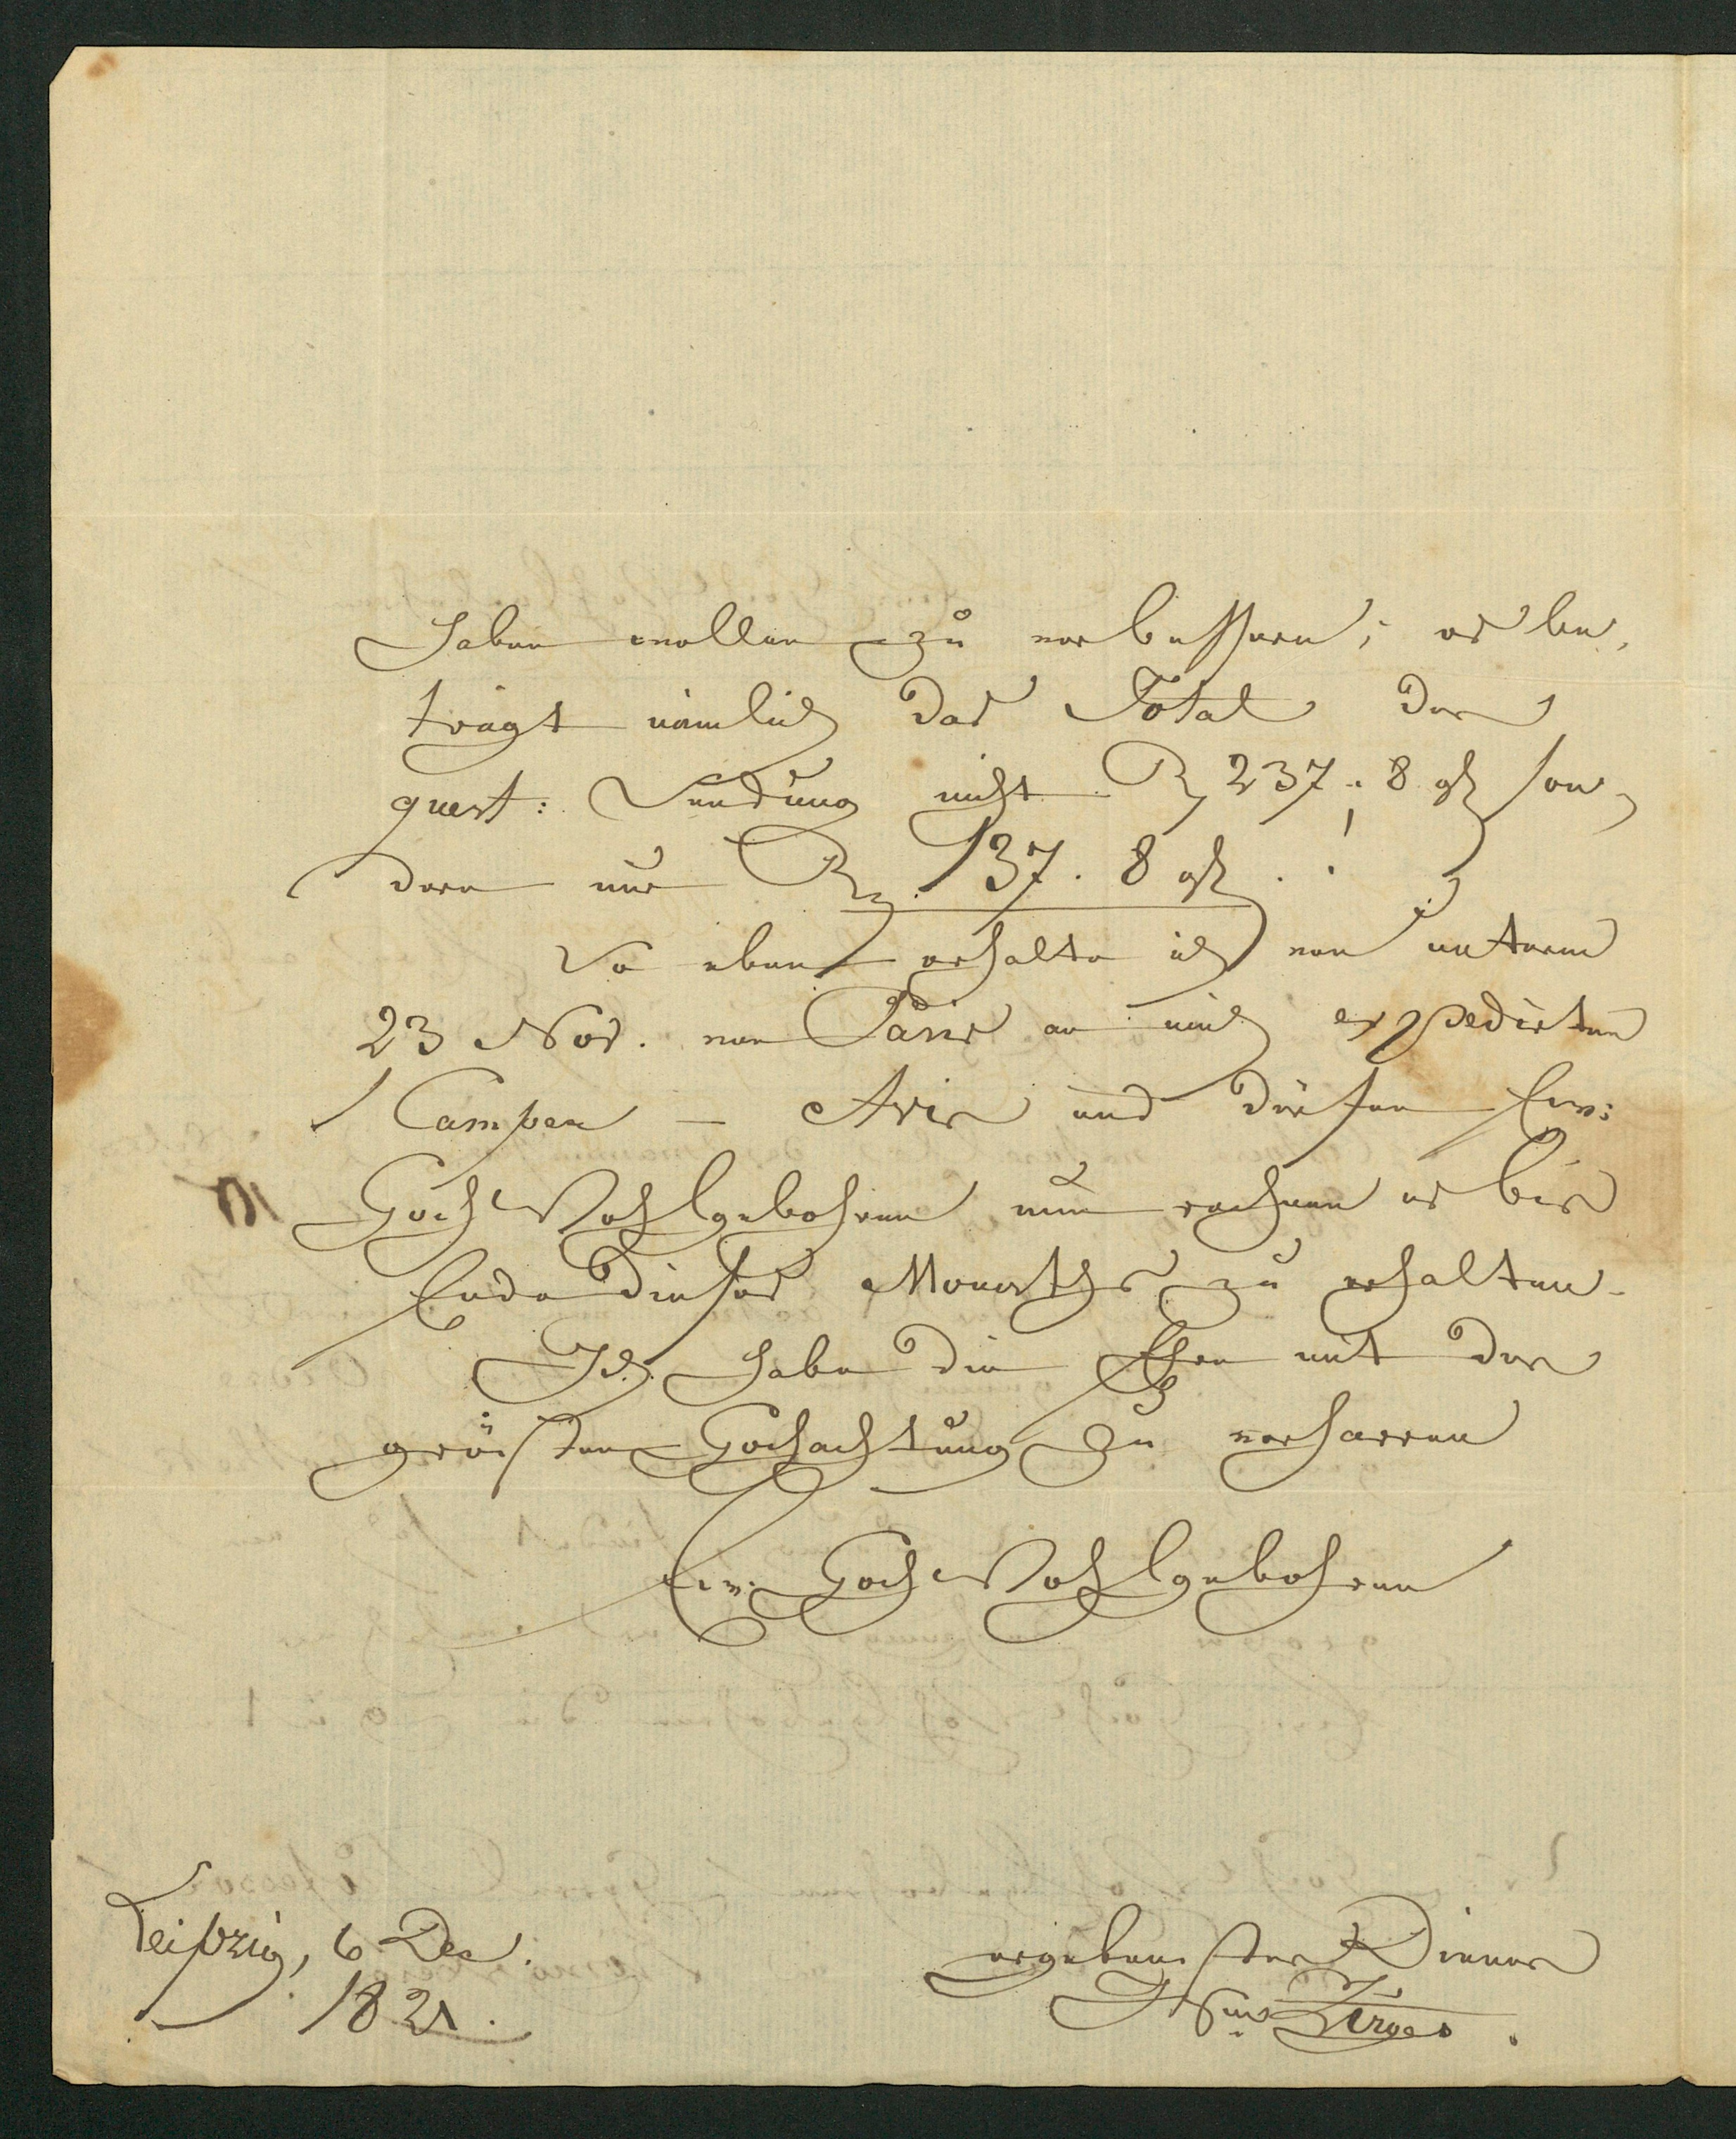 haben wollen zu verbessern; es be„
trägt nämlich das Total der
quest: Sendung nicht R 237.. 8 gl son„
dern nur R 137. 8 gl . !
So eben erhalte ich von unterm
23 Nov. von Paris an mich expedirten
1 Camper — Avis und dürfen Ew:
HochWohlgebohren nun rechnen es bis
Ende dieses Monaths zu erhalten.
Ich habe die Ehre mit der
grösten Hochachtung zu verharren
Ew: HochWohlgebohren
ergebenster Diener
Zirges.
Leipzig, 6 Dec.
1821.